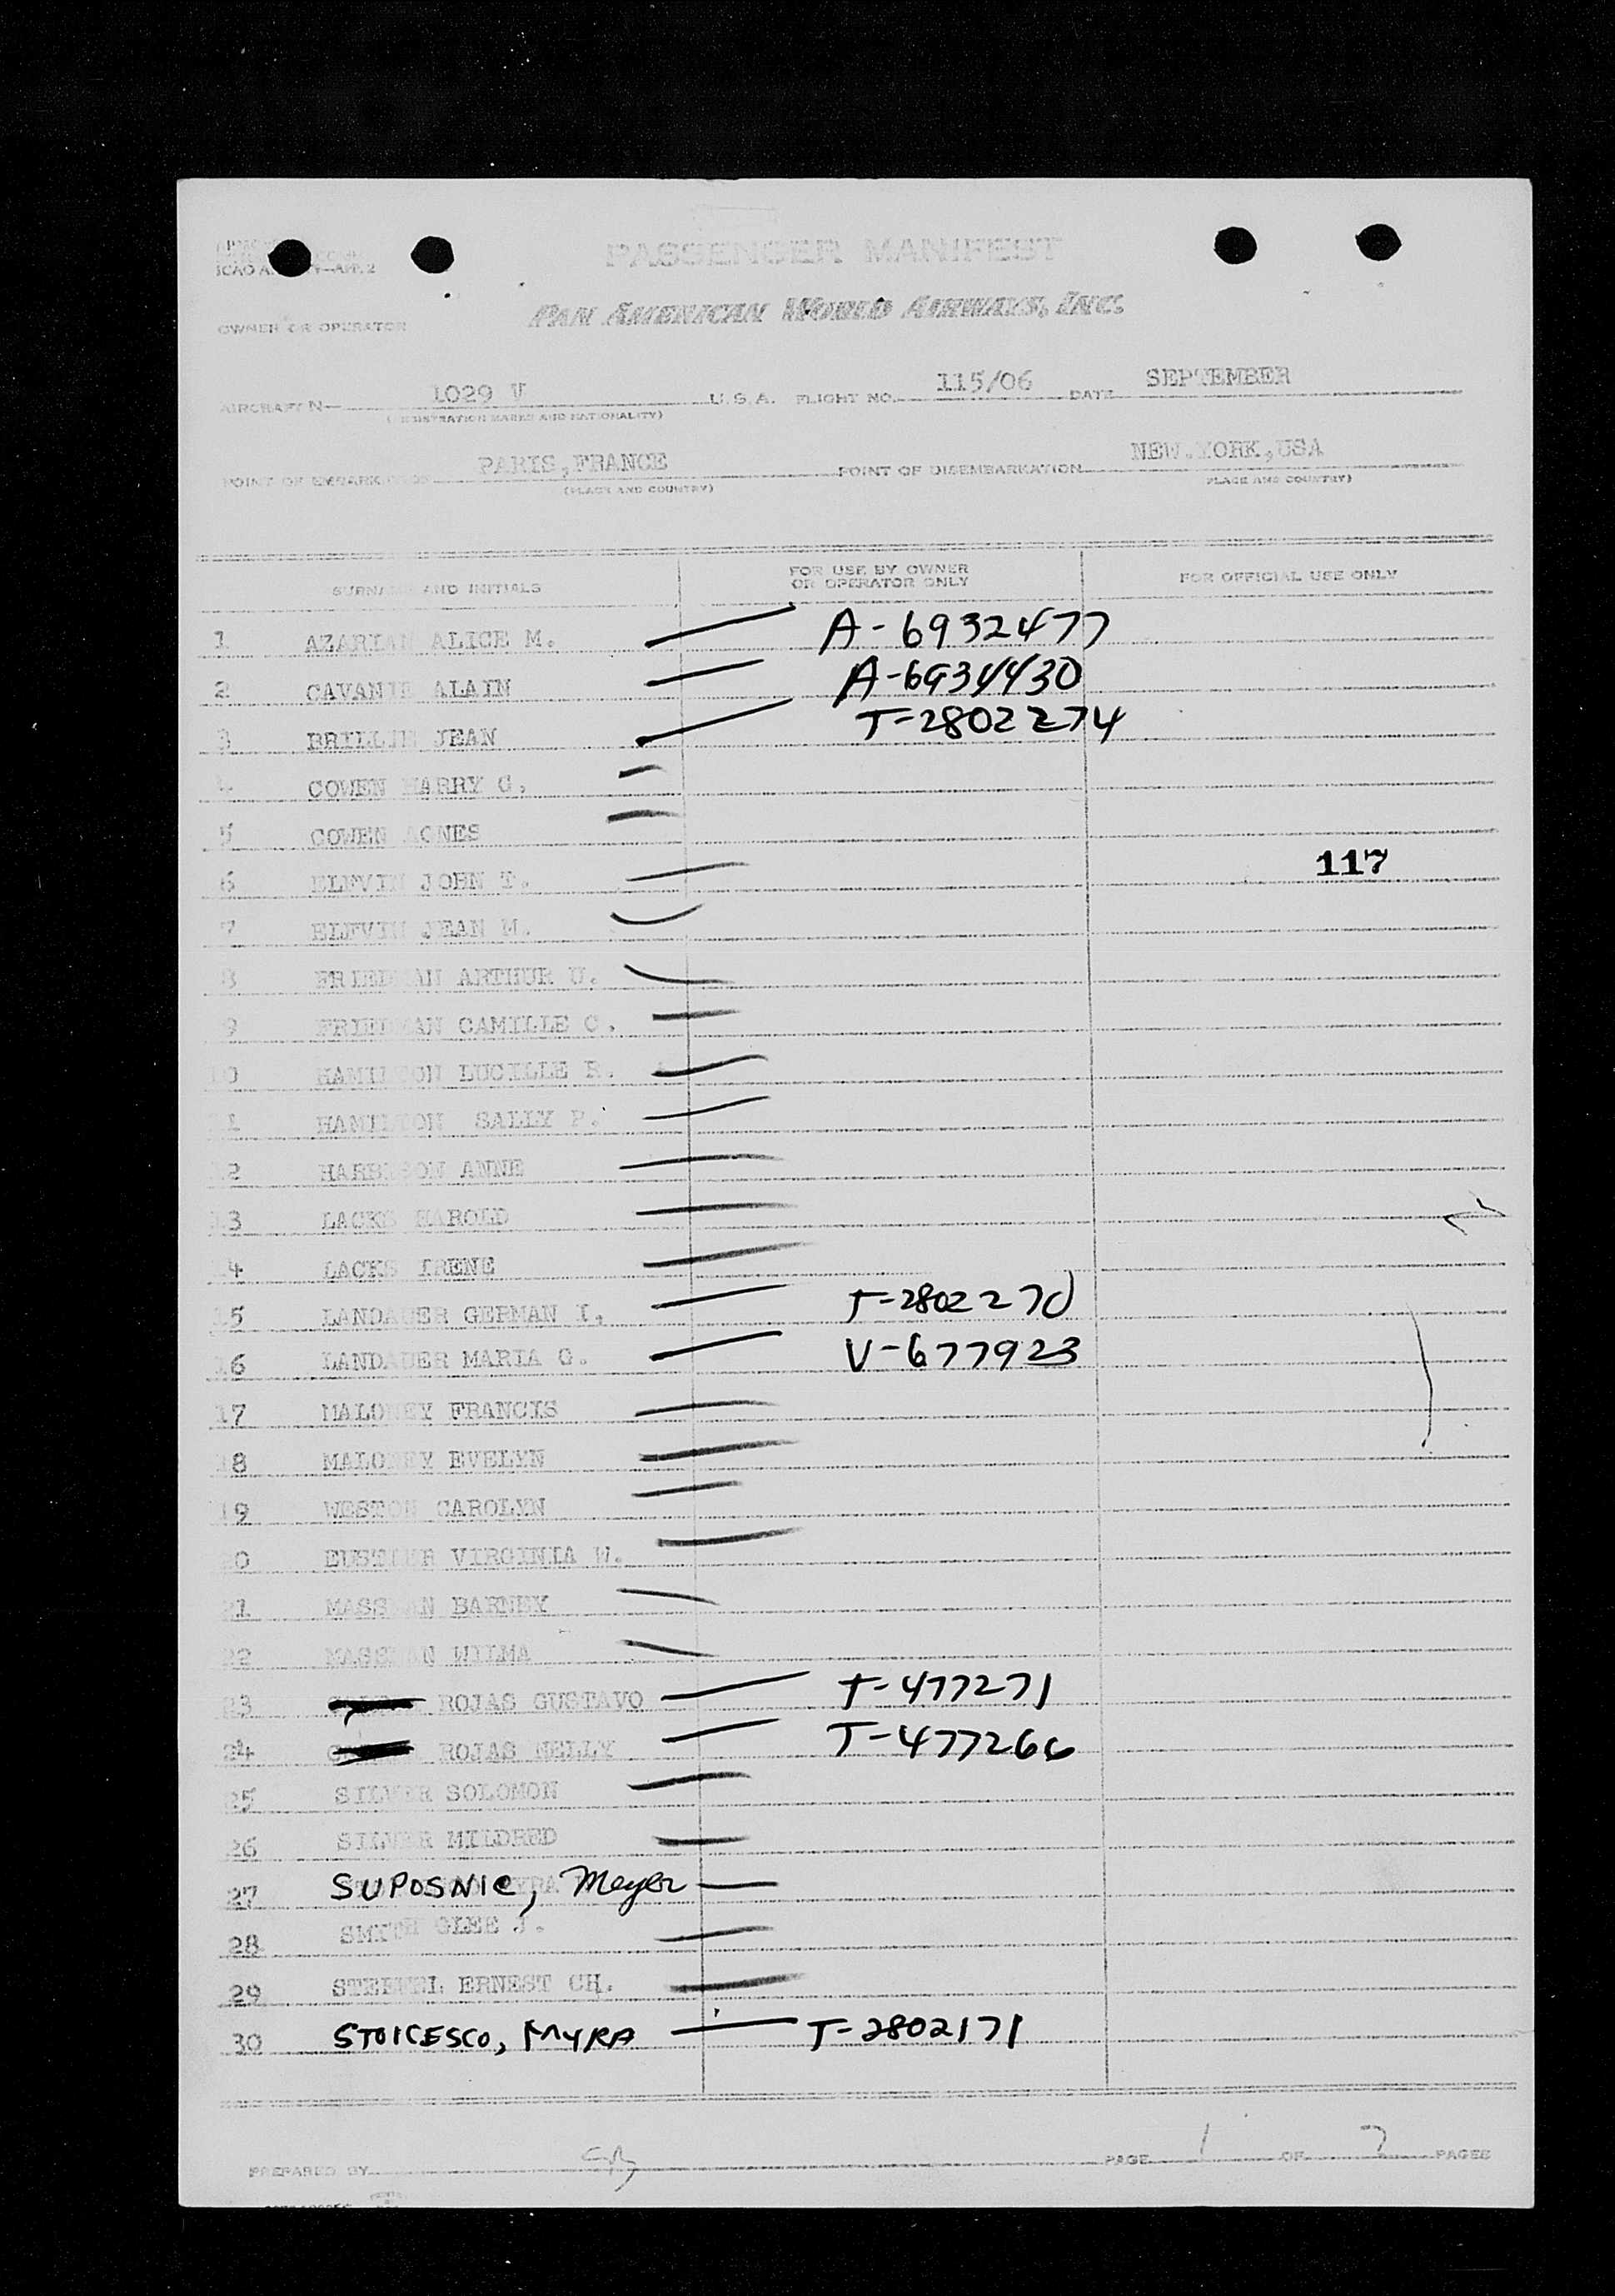 ICAO A
PASSENGER MANIFEST
OWNER OR OPERATOR
PAN AMERICAN WORLD AIRWAYS, INC.
AIRCRAFT N— 1029 V U. S. A. FLIGHT NO. 115/06 DATE SEPTEMBER
(REGISTRATION MARKS AND NATIONALITY)
POINT OF EMBARKATION PARIS, FRANCE POINT OF DISEMBARKATION NEW YORK, USA
(PLACE AND COUNTRY) PLACE AND COUNTRY)
SURNAME AND INITIALS FOR USE BY OWNER OR OPERATOR ONLY FOR OFFICIAL USE ONLY
1 AZARIAN ALICE M. A-6932477
2 ALAIN A-6934430
3 JEAN T-2802274
4 COWEN HARRY G.
5 COWEN AGNES
6 ELFVIN JOHN T. 117
7 ELFVIN JEAN M.
8 FRIEDMAN ARTHUR U.
9 FRIEDMAN CAMILLE C.
10 HAMILTON LUCILLE R.
11 HAMILTON SALLY P.
12 HARBISON ANNE
13 LACKS HAROLD
14 LACKS IRENE
15 LANDAUER GERMAN I. T-2802270
16 LANDAUER MARIA G. V-677923
17 MALONEY FRANCIS
18 MALONEY EVELYN
19 WESTON CAROLYN
20 VIRGINIA W.
21 MASSMAN BARNEY
22 MASSMAN WILMA
23 ROJAS GUSTAVO T-477271
24 ROJAS NELLY T-477266
25 SOLOMON
26 MILDRED
27 SUPOSNIC, Meyer
28 SMITH GLEE J.
29 ERNEST CH.
30 STOICESCO, MYRA T-2802171
PREPARED BY PAGE 1 OF 7 PAGES